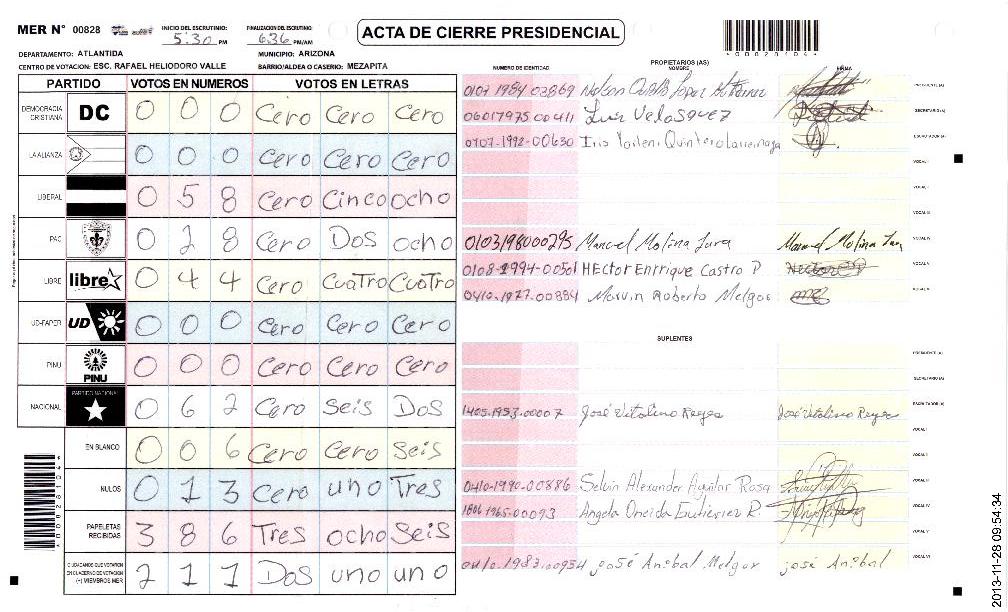 MER N° 00828
INICIO DEL ESCRUTINIO: 5:30 PM
FINALIZACION DEL ESCRUTINIO: 6:36 PM/AM
ACTA DE CIERRE PRESIDENCIAL
DEPARTAMENTO: ATLANTIDA
MUNICIPIO: ARIZONA
CENTRO DE VOTACION: ESC. RAFAEL HELIODORO VALLE
BARRIO/ALDEA O CASERIO: MEZAPITA
PARTIDO VOTOS EN NUMEROS VOTOS EN LETRAS
DEMOCRACIA CRISTIANA DC 0 0 0 Cero Cero Cero
LA ALIANZA 0 0 0 Cero Cero Cero
LIBERAL 0 5 8 Cero Cinco ocho
PAC 0 2 8 Cero Dos ocho
LIBRE libre 0 4 4 Cero CuaTro CuaTro
UD-FAPER UD 0 0 0 Cero Cero Cero
PINU PINU 0 0 0 Cero Cero Cero
NACIONAL PARTIDO NACIONAL 0 6 2 Cero Seis Dos
EN BLANCO 0 0 6 Cero Cero Seis
NULOS 0 1 3 Cero uno Tres
PAPELETAS RECIBIDAS 3 8 6 Tres ocho Seis
CIUDADANOS QUE VOTARON EN CUADERNO DE VOTACION (+) MIEMBROS MER 2 1 1 Dos uno uno
PROPIETARIOS (AS)
NUMERO DE IDENTIDAD NOMBRE FIRMA
0107 1984 03869 Nelson López PRESIDENTE (A)
06017975 00411 Luz Velasquez SECRETARIO (A)
0707-1992-00630 Iris Quintero ESCRUTADOR (A)
VOCAL I
VOCAL II
VOCAL III
0103198000295 Manuel Molina Jara Manuel Molina Jara VOCAL IV
0108-1994-00501 HEctor Enrrique Castro P VOCAL V
0410-1977-00884 Marvin Roberto Melgar VOCAL VI
SUPLENTES
PRESIDENTE (A)
SECRETARIO (A)
1405-1953-00007 José Vitalino Reyes José Vitalino Reyes ESCRUTADOR (A)
VOCAL I
VOCAL II
0410-1990-00886 Selvin Alexander Aguilar Rosa VOCAL III
1806 1965-00093 Angela Oneida Gutierrez R. VOCAL IV
VOCAL V
0410-1983-00934 José Anibal Melgar josé Anibal VOCAL VI
2013-11-28 09:54:34